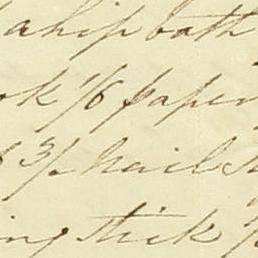 a whip both
ok 1/6 paper
3/. Nail
ing stick